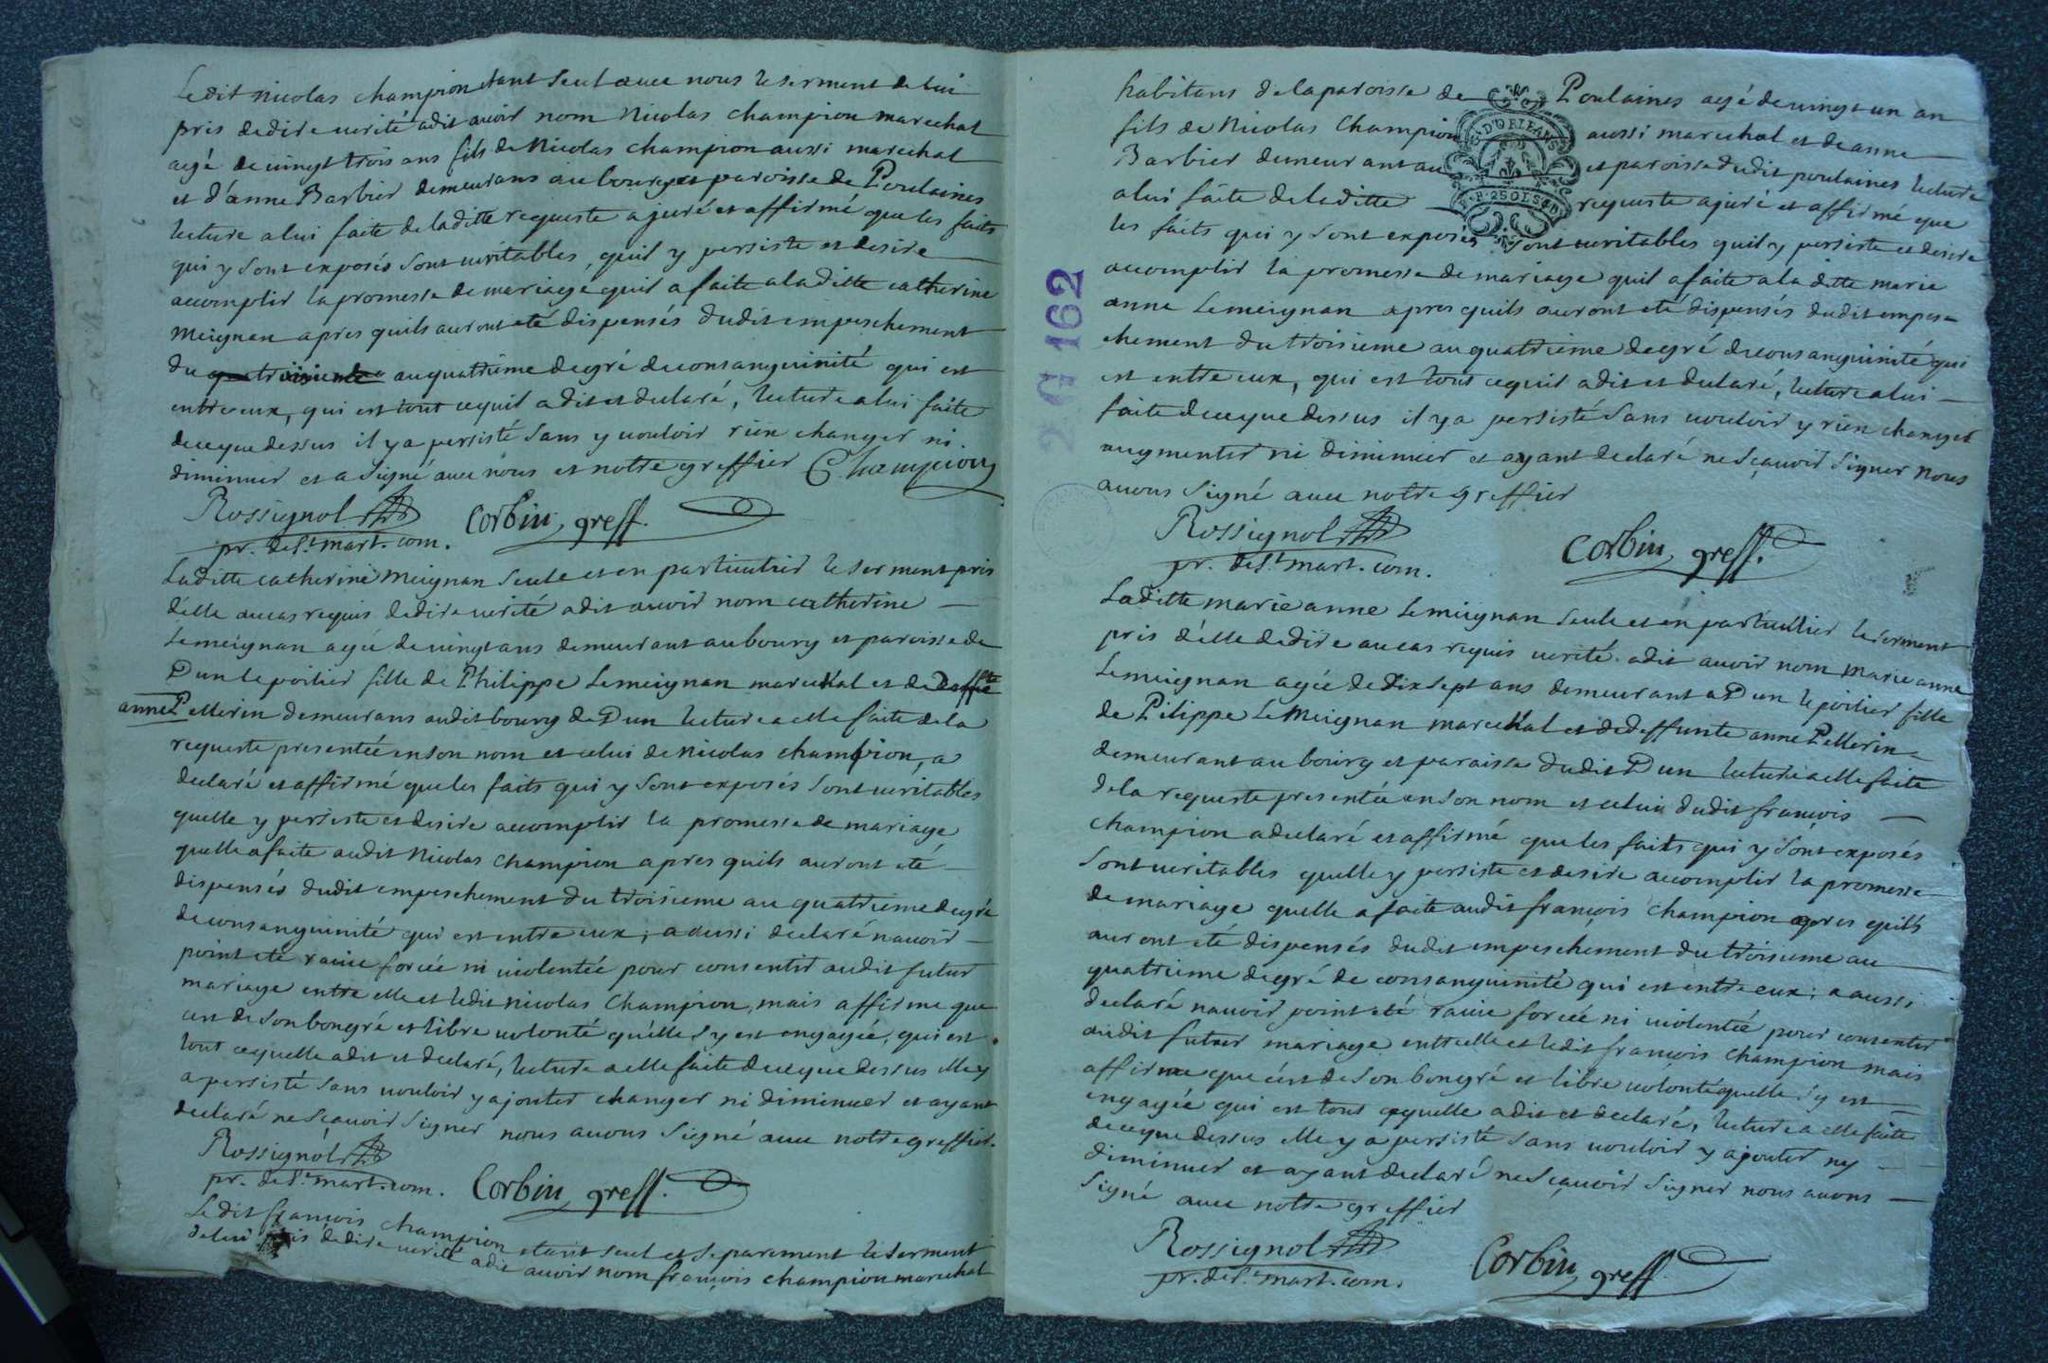 Ledit nicolas champion etant seul avec nous le serment de lui
pris de dire verité a dit avoir nom Nicolas champion marechal
agé de vingt trois ans fils de Nicolas champion aussi marechal
et d'anne Barbier demeurans au bourg et paroisse de Poulaines
lecture a lui faite de laditte requeste a juré et affirmé que les faits
qui y sont exposés sont veritables, quil y persiste et desire
accomplir la promesse de mariage quil a faite a laditte catherine
Meignan apres quils auront eté dispensés dudit empeschement
du troisieme au quatrieme degré de consanguinité qui est
entre eux, qui est tout ce quil a dit et declaré, lecture a lui faite
de ce que dessus il y a persisté sans y vouloir rien changer ni
diminuer et a signé avec nous et notre greffier Champion
Rossignol
pr. de St. mart. com. Corbin greff.
Laditte catherine Meignan seule et en particulier le serment pris
d'elle au cas requis de dire verité a dit avoir nom catherine
Lemeignan agée de vingt ans demeurant au bourg et paroisse de
Dun le poilier fille de Philippe Lemeignan marechal et de deffte
anne Pellerin demeurans audit bourg de Dun lecture a elle faite de la
requeste presentée en son nom et celui de Nicolas champion, a
declaré et affirmé que les faits qui y sont exposés sont veritables
quelle y persiste et desire accomplir la promesse de mariage
quelle a faite audit Nicolas champion apres quils auront eté
dispensés dudit empeschement du troisieme au quatrieme degré
de consanguinité qui est entre eux; a aussi declaré navoir
point eté ravie forcée ni violentée pour consentir audit futur
mariage entre elle et ledit nicolas champion, mais affirme que
cest de son bon gré et libre volonté quelle s'y est engagée, qui est
tout ce quelle a dit et declaré, lecture a elle faite de ce que dessus elle y
a persisté sans vouloir y ajouter changer ni diminuer et ayant
declaré ne sçavoir signer nous avons signé avec notre greffier.
Rossignol
pr. de St. mart. com. Corbin greff.
Ledit françois champion etant seul et separement le serment
de lui pris de dire verité a dit avoir nom françois champion marechal
habitans de la paroisse de Poulaines agé de vingt un an
fils de Nicolas Champion aussi marechal et de anne
Barbier demeurant au et paroisse dudit poulaines lecture
a lui faite de laditte requeste a juré et affirmé que
les faits qui y sont exposés sont veritables quil y persiste et desire
accomplir la promesse de mariage quil a faite a laditte marie
anne Lemeignan apres quils auront eté dispensés dudit empes
chement du troisieme au quatrieme degré de consanguinité qui
est entre eux, qui est tout ce quil a dit et declaré, lecture a lui
faite de ce que dessus il y a persisté sans vouloir y rien changer
augmenter ni diminuer et ayant declaré ne sçavoir signer nous
avons signé avec notre greffier
Rossignol
pr. de St. mart. com. Corbin greff.
Laditte marie anne Lemeignan seule et en particulier le serment
pris d'elle de dire au cas requis verité a dit avoir nom Marie anne
Lemeignan agée de dix sept ans demeurant a Dun le poilier fille
de Pilippe Le Meignan marechal et de deffunte anne Pellerin
demeurant au bourg et paroisse dudit Dun lecture a elle faite
de la requeste presentée en son nom et celui dudit françois
champion a declaré et affirmé que les faits qui y sont exposés
sont veritables quelle y persiste et desire accomplir la promesse
de mariage quelle a faite audit françois champion apres quils
auront eté dispensés dudit empeschement du troisieme au
quatrieme degré de consanguinité qui est entre eux; a aussi
declaré navoir point eté ravie forcée ni violentée pour consentir
audit futur mariage entre elle et ledit françois champion mais
affirme que c'est de son bon gré et libre volonté quelle s'y est
engagée qui est tout ce quelle a dit et declaré, lecture a elle faite
de ce que dessus elle y a persisté sans vouloir y ajouter ny
diminuer et ayant declaré ne sçavoir signer nous avons
signé avec notre greffier
Rossignol
pr. de St. mart. com. Corbin greff.
D'ORLEANS
2 G 162